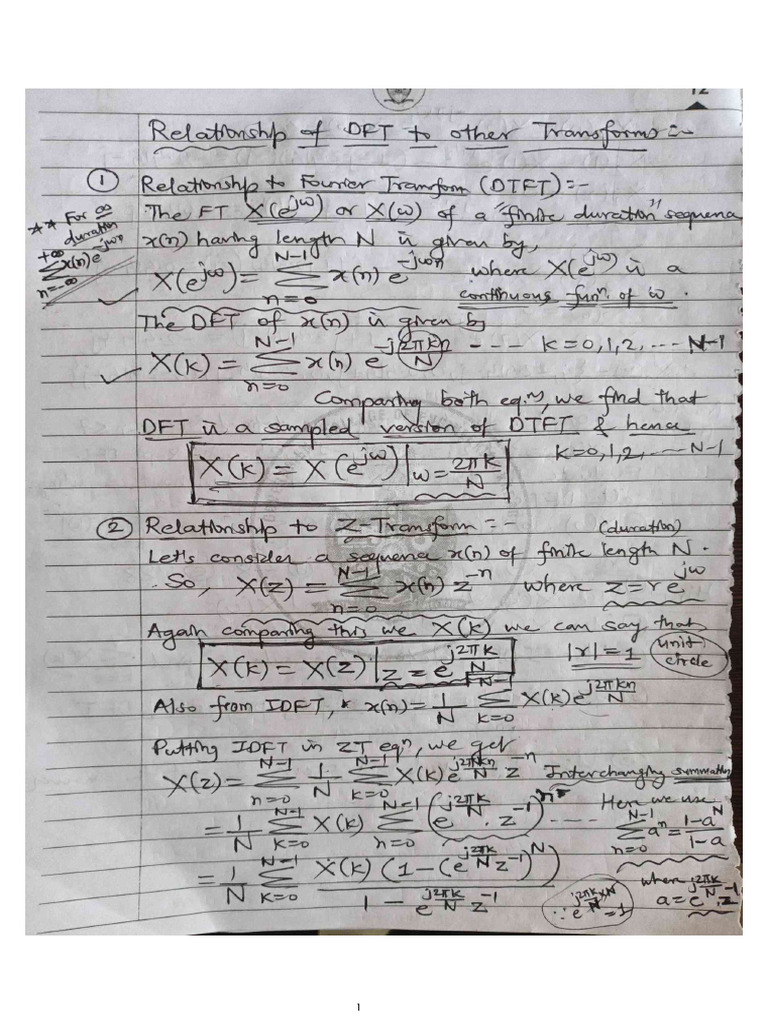 12
Relationship of DFT to other Transforms :-
① Relationship to Fourier Transform (DTFT) :-
** For ∞ duration +∞ Σ n=-∞ x(n) e^{-jωn}
The FT X(e^{jω}) or X(ω) of a "finite duration" sequence
x(n) having length N is given by,
X(e^{jω}) = N-1 Σ n=0 x(n) e^{-jωn} where X(e^{jω}) is a
continuous funⁿ. of ω.
The DFT of x(n) is given by
X(k) = N-1 Σ n=0 x(n) e^{-j2πkn/N} ---- k=0,1,2,....N-1
Comparing both eq.ⁿˢ, we find that
DFT is a sampled version of DTFT & hence
X(k) = X(e^{jω})|ω=2πk/N k=0,1,2,....N-1
② Relationship to Z-Transform :-
(duration)
Let's consider a sequence x(n) of finite length N.
So, X(z) = N-1 Σ n=0 x(n) z^{-n} where z=re^{jω}
Again comparing this we X(k) we can say that
X(k) = X(z)|z=e^{j2πk/N} |r|=1 unit circle
Also from IDFT, x(n) = 1/N N-1 Σ k=0 X(k) e^{j2πkn/N}
Putting IDFT in ZT eqⁿ, we get
X(z) = N-1 Σ n=0 1/N N-1 Σ k=0 X(k) e^{j2πkn/N} z^{-n} Interchanging summation
= 1/N N-1 Σ k=0 X(k) N-1 Σ n=0 (e^{j2πk/N} . z^{-1})^n ---- Here we use N-1 Σ n=0 a^n = 1-a^N / 1-a
= 1/N N-1 Σ k=0 X(k) (1-(e^{j2πk/N} z^{-1})^N) / 1 - e^{j2πk/N} z^{-1} ∵ e^{j2πk/N × N} = 1 where a = e^{j2πk/N} . z^{-1}
1